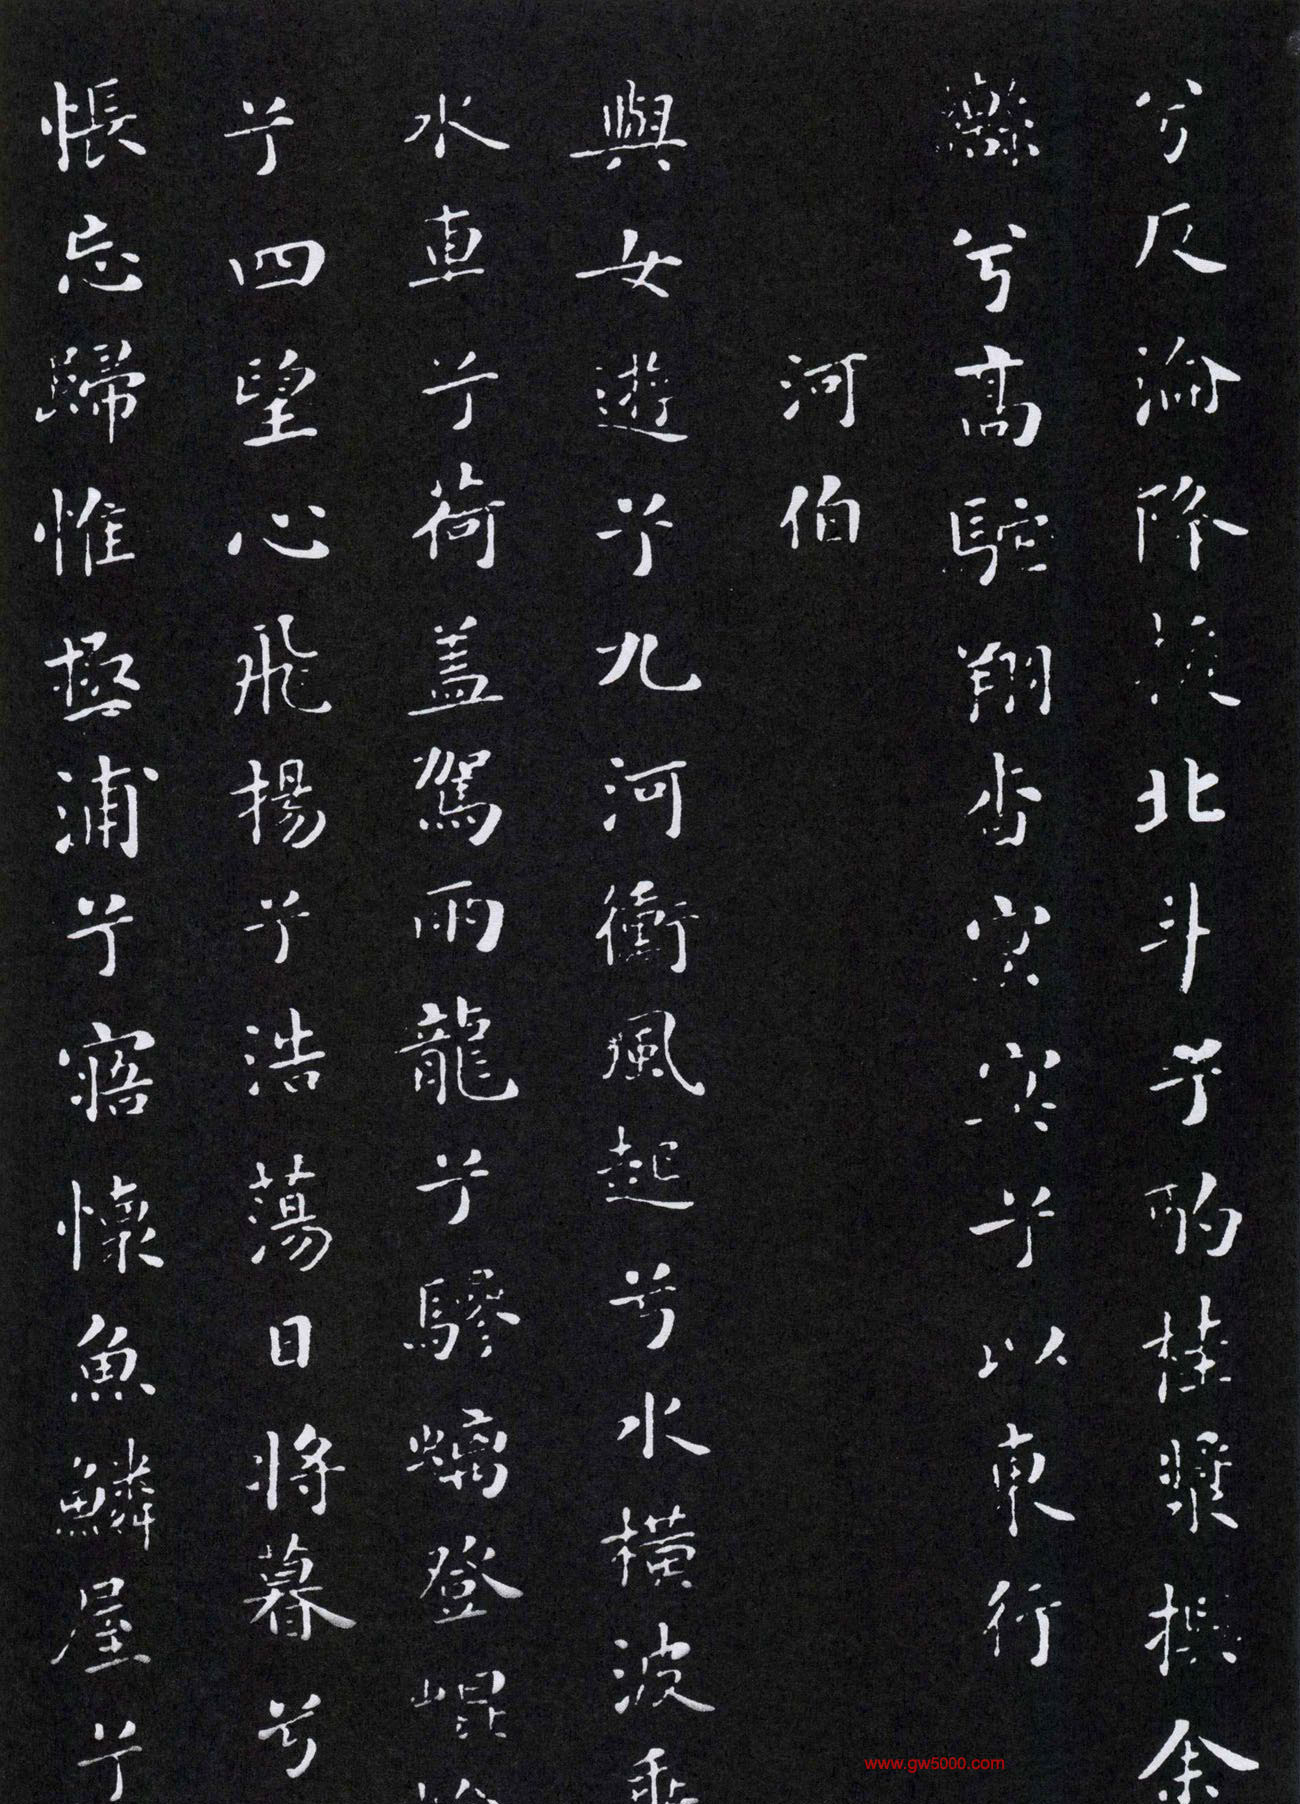 兮反淪降援北斗兮酌桂漿撰余
轡兮高駝翔杳冥冥兮以東行
河伯
與女遊兮九河衝風起兮水橫波乘
水車兮荷蓋駕兩龍兮驂螭登崐
兮四望心飛揚兮浩蕩日將暮兮
悵忘歸惟極浦兮寤懷魚鱗屋兮
www.gw5000.com